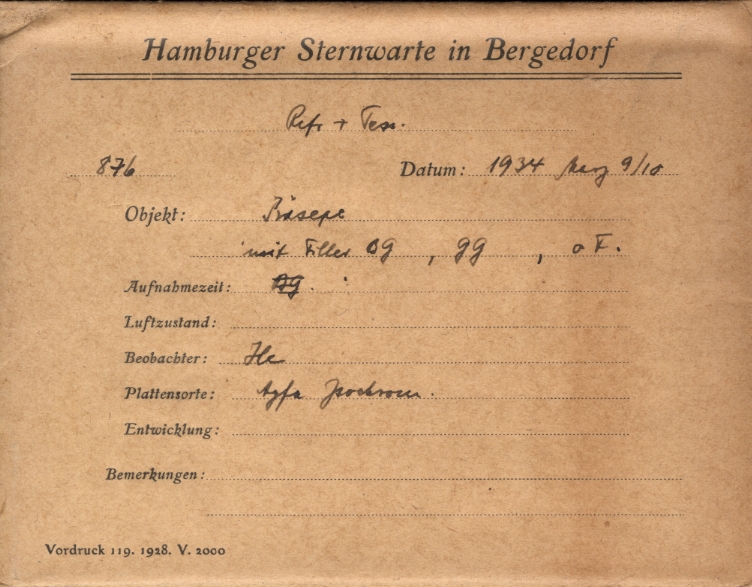 Hamburger Sternwarte in Bergedorf
Refr + Tess.
876 Datum: 1934 März 9/10
Objekt: Präsepe
mit Filter OG , GG , o F.
Aufnahmezeit:
Luftzustand:
Beobachter: He
Plattensorte: Agfa Isochrom.
Entwicklung:
Bemerkungen:
Vordruck 119. 1928. V. 2000